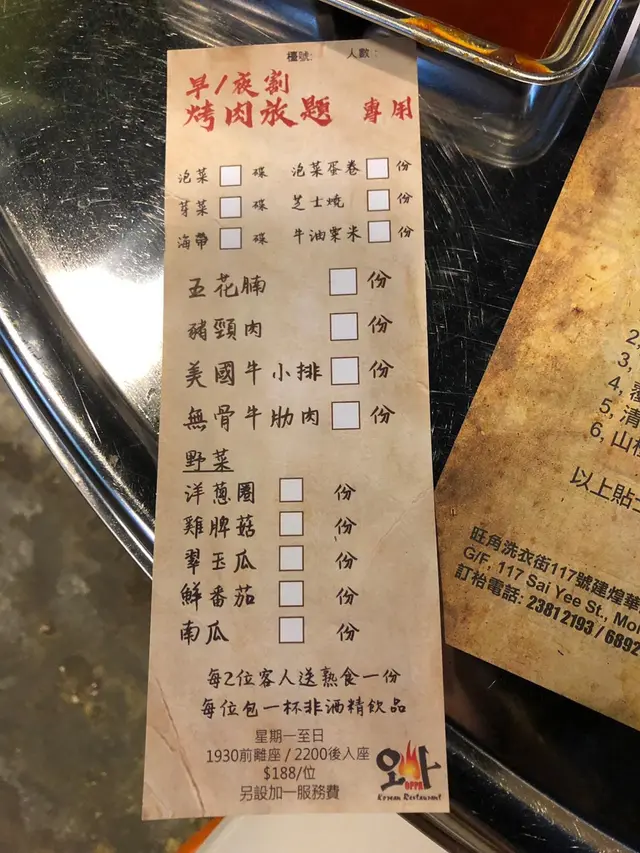 檯號: 人數:
早/夜劃
烤肉放題 專用
泡菜 碟 泡菜蛋卷 份
芽菜 碟 芝士燒 份
海帶 碟 牛油粟米 份
五花腩 份
豬頸肉 份
美國牛小排 份
無骨牛肋肉 份
野菜
洋蔥圈 份
雞脾菇 份
翠玉瓜 份
鮮番茄 份
南瓜 份
每2位客人送熟食一份
每位包一杯非酒精飲品
星期一至日
1930前離座 / 2200後入座
$188/位
另設加一服務費
오빠
OPPA
Korean Restaurant
2,
3,
4,
5, 清
6, 山
以上貼士
旺角洗衣街117號建煌華
G/F, 117 Sai Yee St., Mo
訂枱電話: 2381 2193 / 6892